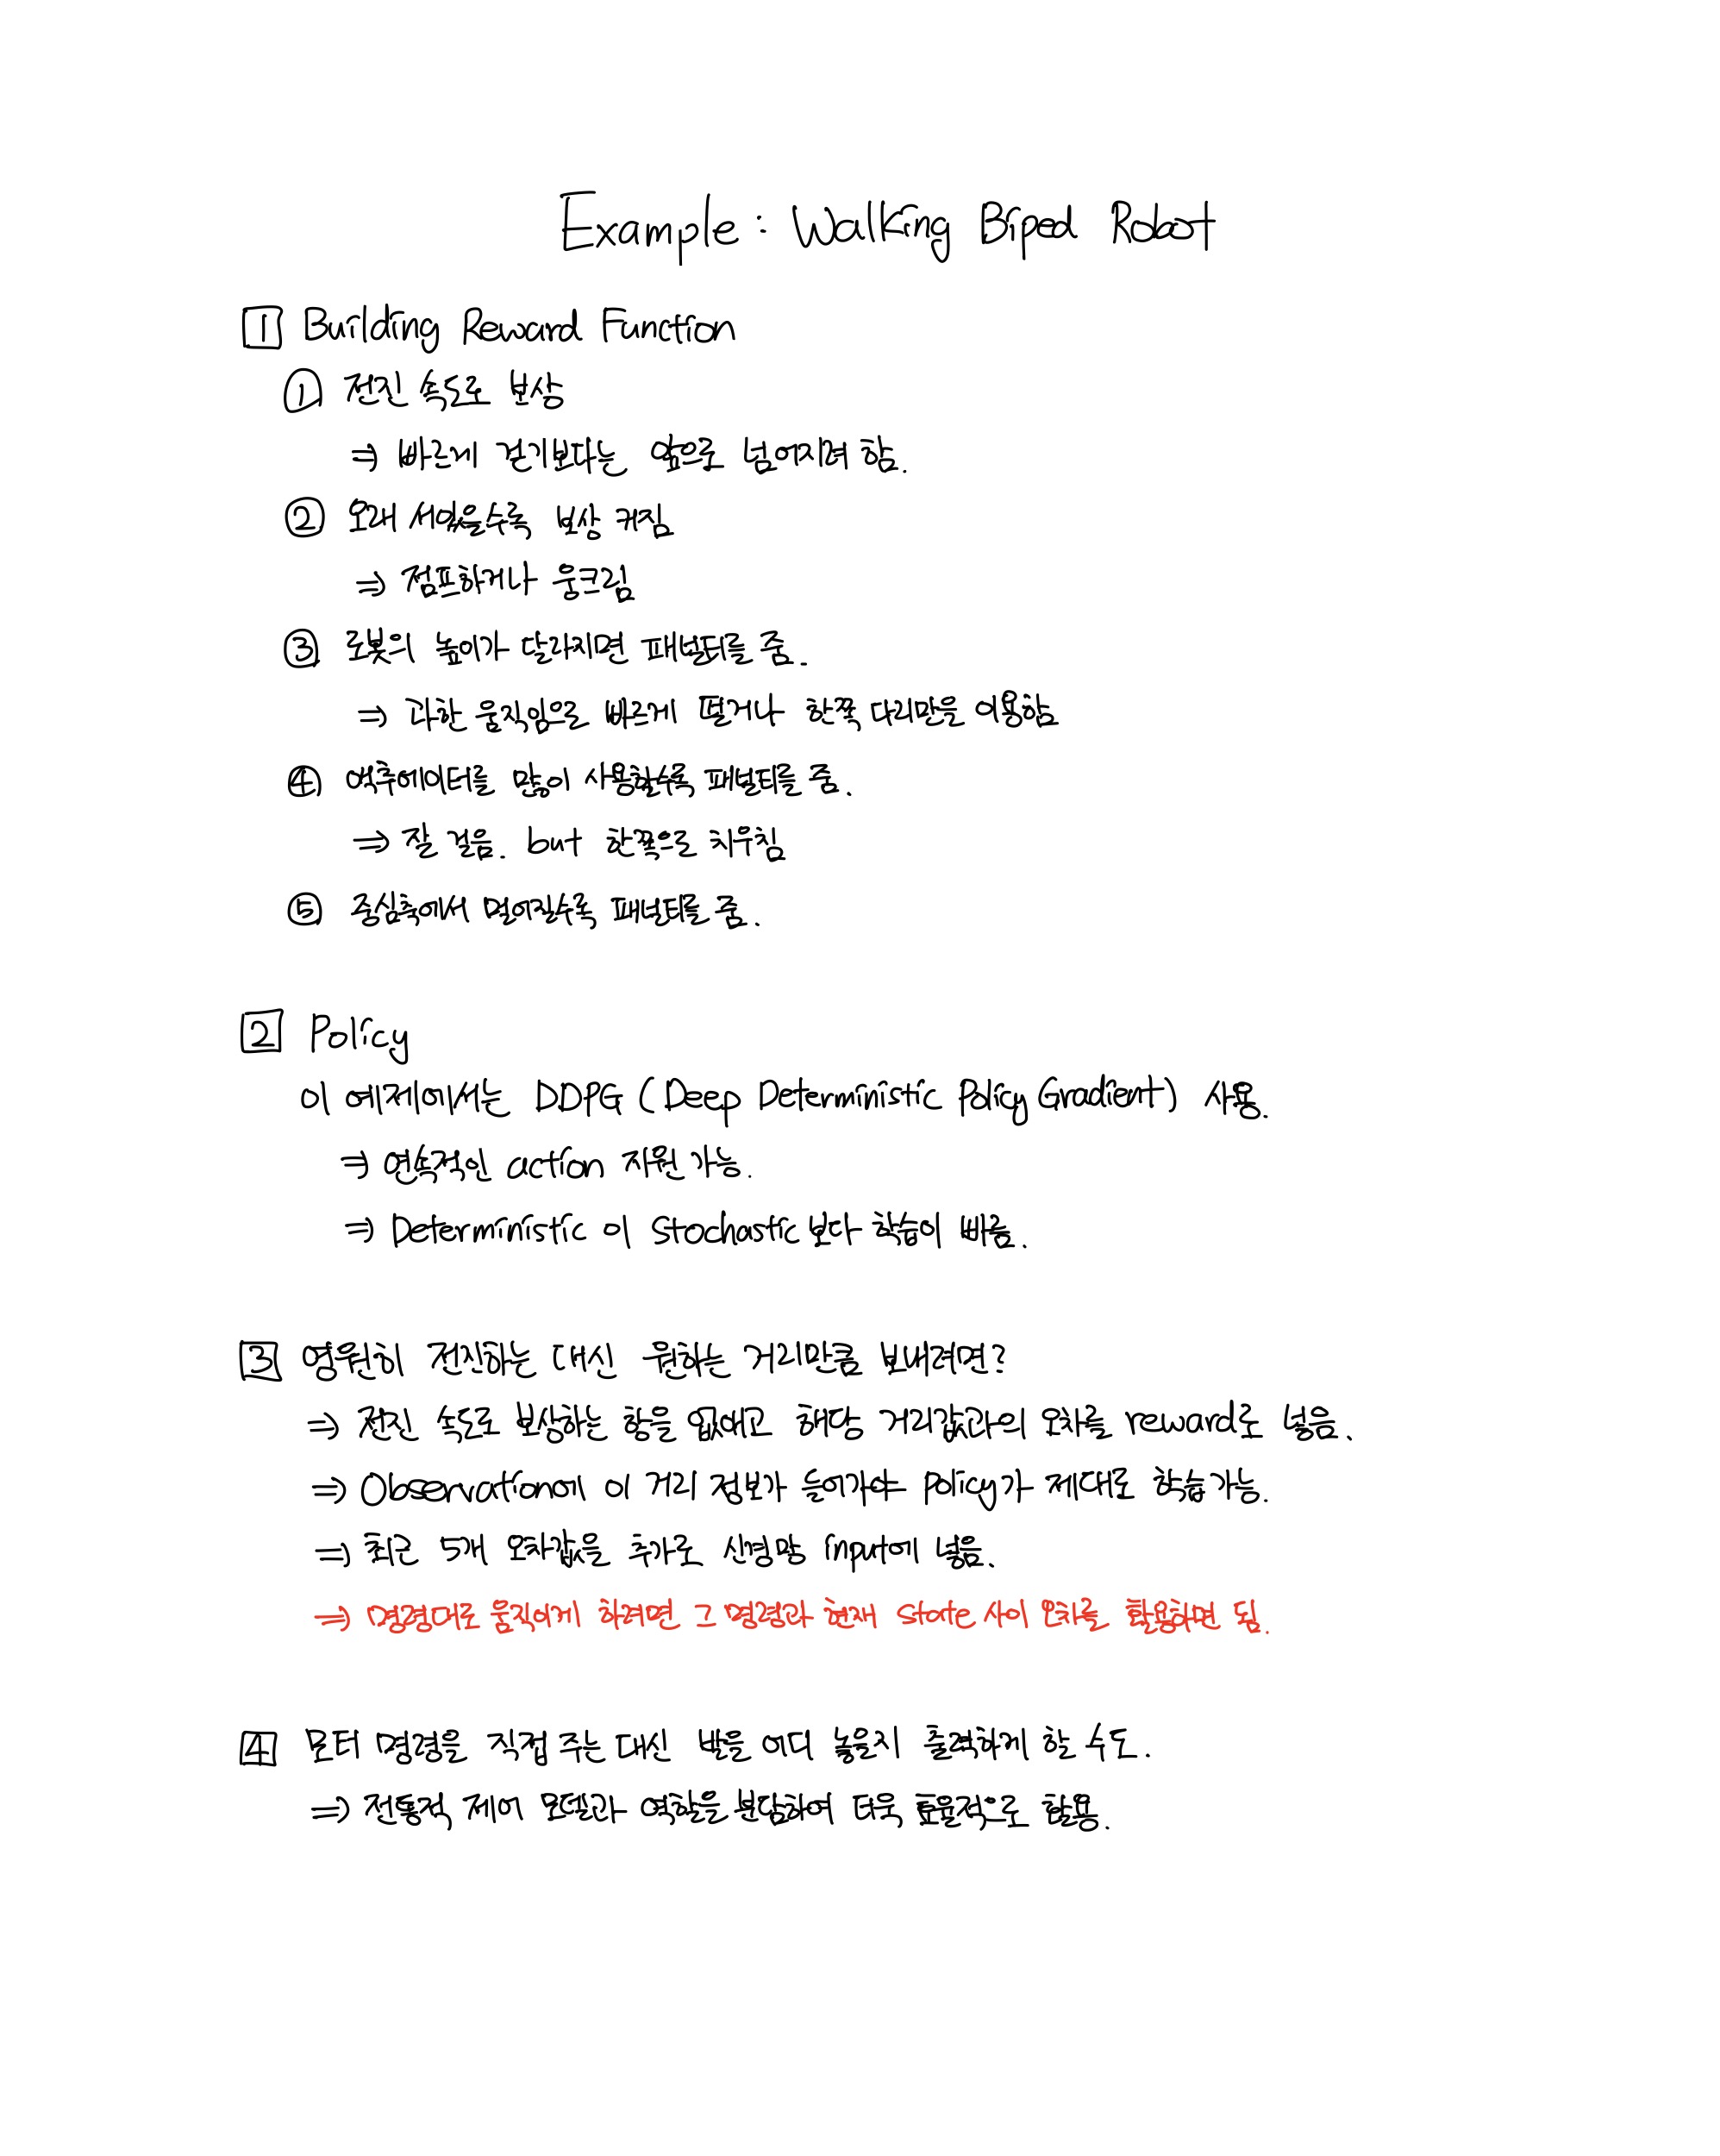 Example : Walking Biped Robot
1 Building Reward Function
① 전진 속도로 보상
⇒ 빠르게 걷기보다는 앞으로 넘어지려 함.
② 오래 서있을수록 보상 커짐
⇒ 점프하거나 웅크림
③ 로봇의 높이가 달라지면 패널티를 줌.
⇒ 과한 움직임으로 빠르게 떨거나 한쪽 다리만을 이용함
④ 액추에이터를 많이 사용할수록 패널티를 줌.
⇒ 잘 걸음. but 한쪽으로 치우침
⑤ 중심축에서 멀어질수록 패널티를 줌.
2 Policy
이 예제에서는 DDPG (Deep Deterministic Policy Gradient) 사용.
⇒ 연속적인 action 지원 가능.
⇒ Deterministic 이 Stochastic 보다 학습이 빠름.
3 영원히 전진하는 대신 원하는 거리만큼 보내려면?
⇒ 전진 속도로 보상하는 항을 없애고 해당 거리값과의 오차를 reward로 넣음.
⇒ Observation에 이 거리 정보가 들어가야 policy가 제대로 학습 가능.
⇒ 최근 5개 오차값을 추가로 신경망 input에 넣음.
⇒ 명령대로 움직이게 하려면 그 명령과 현재 state 사이 오차를 활용하면 됨.
4 모터 명령을 직접 주는 대신 발을 어디 놓을지 출력하게 할 수도.
⇒ 전통적 제어 모델과 역할을 분담하여 더욱 효율적으로 활용.